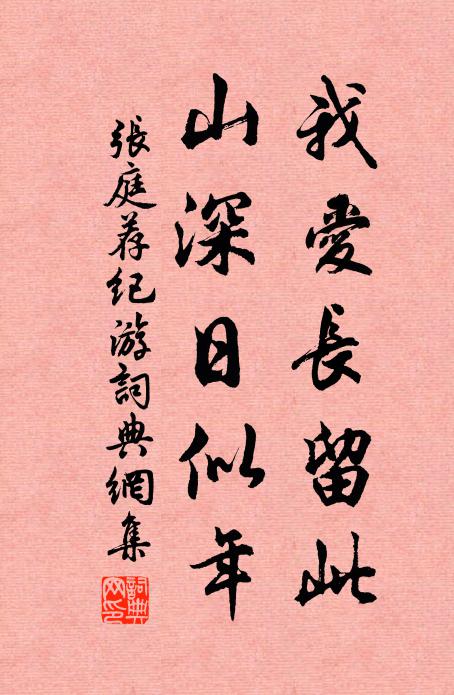 我愛長留此
山深日似年
張庭荐紀游詞典網集
詞典
网印